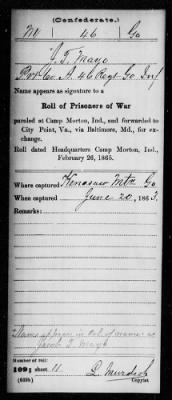 (Confederate.)
M 46 Ga
J. T. Mayo
Pvt Co. A, 46 Regt Ga. Inf
Name appears as signature to a
Roll of Prisoners of War
paroled at Camp Morton, Ind., and forwarded to
City Point, Va., via Baltimore, Md., for ex-
change.
Roll dated Headquarters Camp Morton, Ind.,
February 26, 1865.
Where captured Kenesaw Mtn Ga
When captured June 20, 1863.
Remarks:
Name appears in Col. of names as
Jacob T. Mayo
Number of roll:
109; sheet 11
(639b)
L. Murdoch
Copyist.